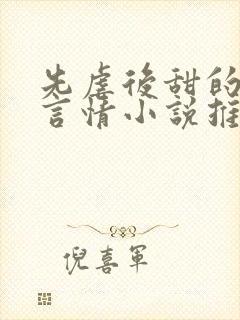 先虐後甜的
言情小說推
倪喜軍